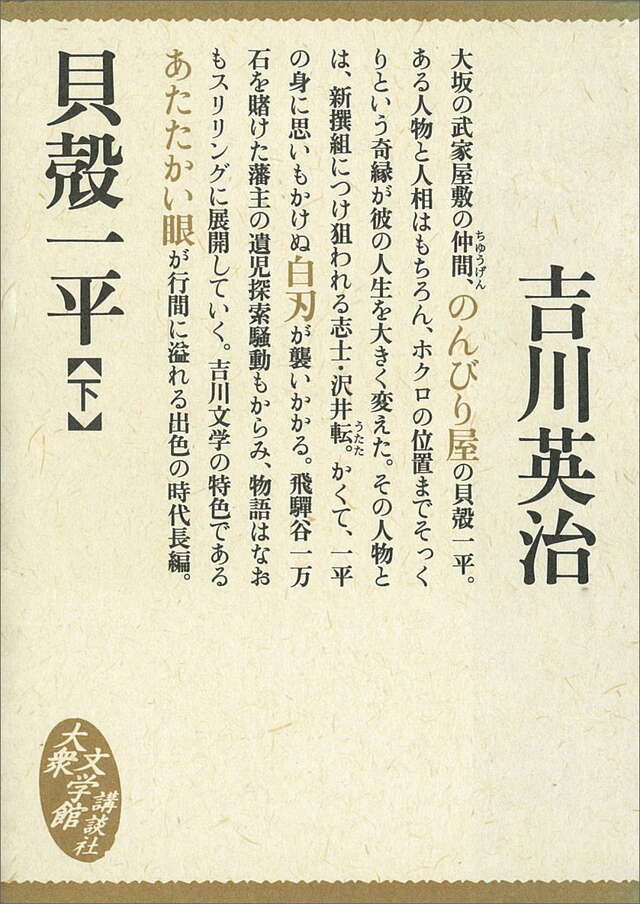 吉川英治
大坂の武家屋敷の仲間、のんびり屋の貝殻一平。
ちゆうげん
ある人物と人相はもちろん、ホクロの位置までそっく
りという奇縁が彼の人生を大きく変えた。その人物と
は、新撰組につけ狙われる志士・沢井転。かくて、一平
うたた
の身に思いもかけぬ白刃が襲いかかる。飛驒谷一万
石を賭けた藩主の遺児探索騒動もからみ、物語はなお
もスリリングに展開していく。吉川文学の特色である
あたたかい眼が行間に溢れる出色の時代長編。
貝殻一平【下】
大衆
文学館
講談社